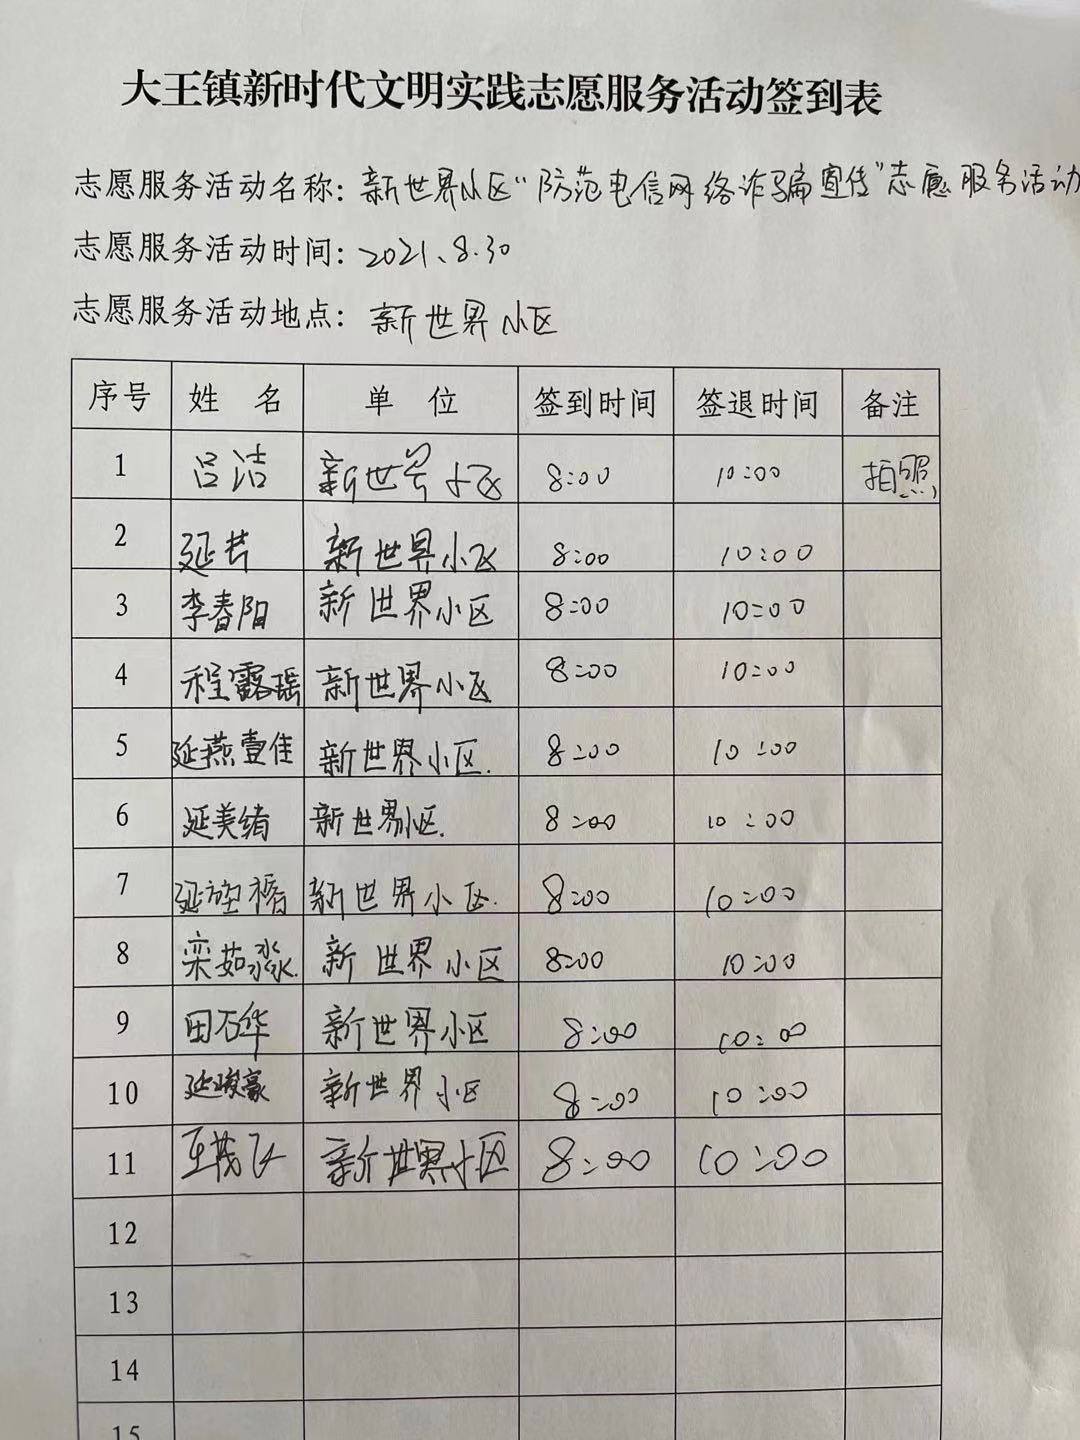 大王镇新时代文明实践志愿服务活动签到表
志愿服务活动名称：新世界小区“防范电信网络诈骗宣传”志愿服务活动
志愿服务活动时间：2021、8.30
志愿服务活动地点：新世界小区
序号 姓名 单位 签到时间 签退时间 备注
1 吕洁 新世界小区 8:00 10:00 拍照
2 延芹 新世界小区 8:00 10:00
3 李春阳 新世界小区 8:00 10:00
4 程露瑶 新世界小区 8:00 10:00
5 延燕壹佳 新世界小区. 8:00 10:00
6 延美绪 新世界小区. 8:00 10:00
7 延 新世界小区. 8:00 10:00
8 栾茹淼. 新世界小区 8:00 10:00
9 田石华 新世界小区 8:00 10:00
10 延峻豪 新世界小区 8:00 10:00
11 王茂飞 新世界小区 8:00 10:00
12
13
14
15